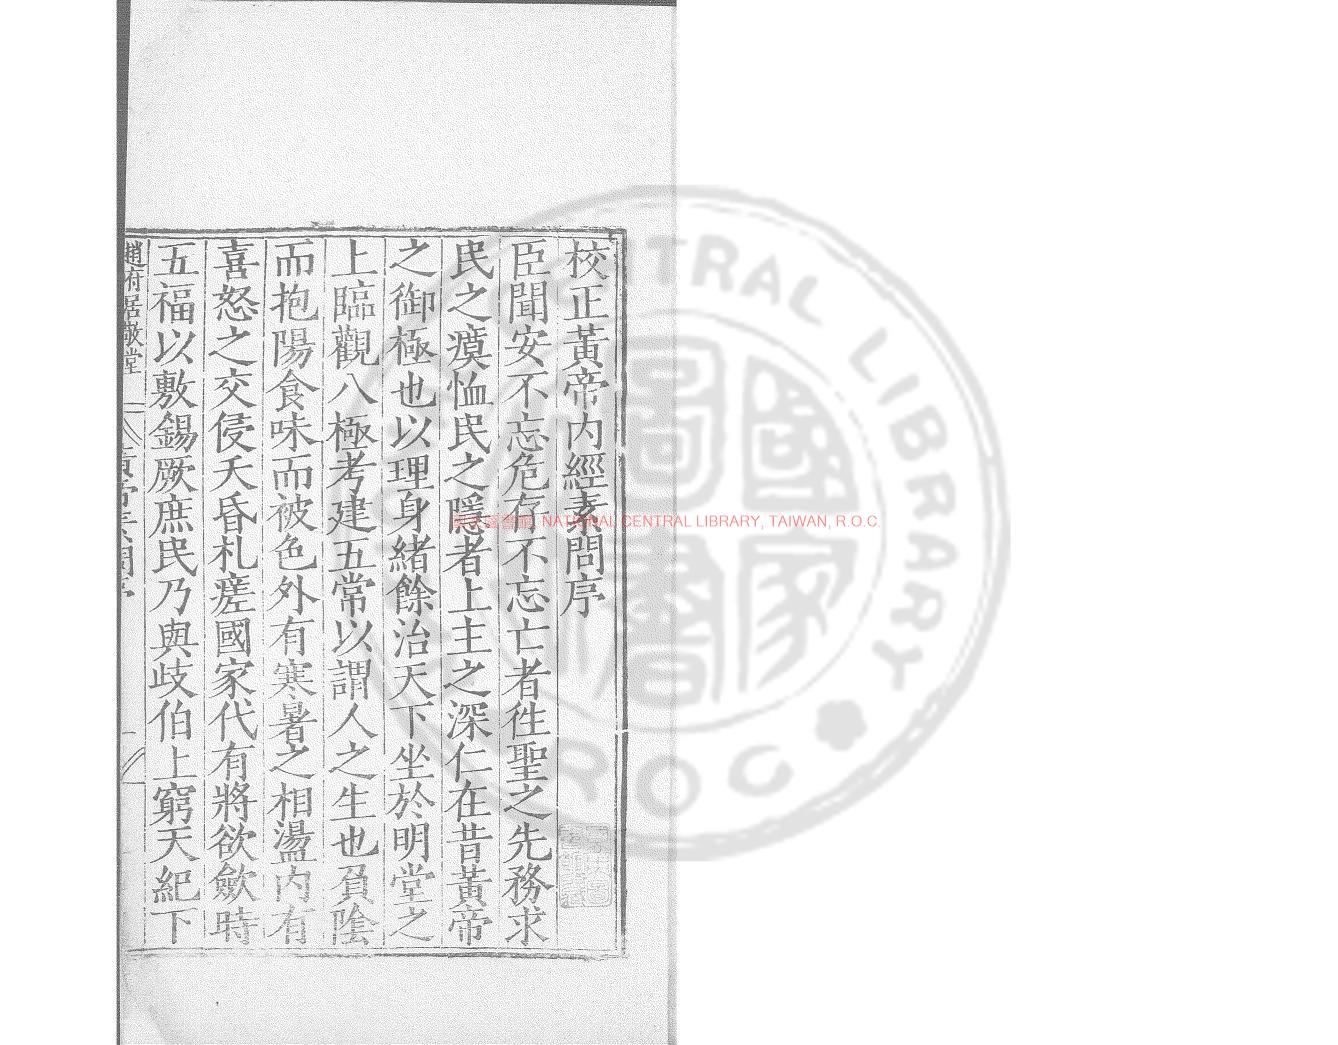 校正黃帝内經素問序
臣聞安不忘危存不忘亡者徃聖之先務求
民之瘼恤民之隱者上主之深仁在昔黃帝
之御極也以理身緒餘治天下坐於明堂之
上臨觀八極考建五常以謂人之生也負陰
而抱陽食味而被色外有寒暑之相盪内有
喜怒之交侵夭昏札瘥國家代有將欲斂時
五福以敷錫厥庶民乃與歧伯上窮天紀下
趙府居敬堂
國家圖書館
CENTRAL LIBRARY
R O C
NATIONAL CENTRAL LIBRARY, TAIWAN, R.O.C.